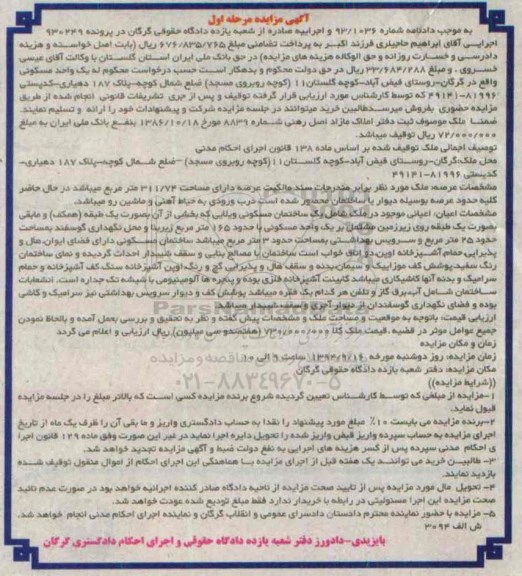 آگهی مزایده مرحله اول
به موجب دادنامه شماره 92/1036 و اجراییه صادره از شعبه یازده دادگاه حقوقی گرگان در پرونده 930249
اجرایی آقای ابراهیم حاجیلری فرزند اکبر به پرداخت تضامنی مبلغ 676/835/765 ریال (بابت اصل خواسته و هزینه
دادرسی و خسارت روزانه و حق الوکاله هزینه های مزایده) در حق بانک ملی ایران استان گلستان با وکالت آقای عیسی
خسروی، و مبلغ 32/684/288 ریال در حق دولت محکوم و بدهکار است حسب درخواست محکوم له یک واحد مسکونی
واقع در گرگان-روستای فیض آباد-کوچه گلستان 11 (کوچه روبروی مسجد) ضلع شمال کوچه-پلاک 187 دهیاری-کدپستی
49141-81996 که توسط کارشناس مورد ارزیابی قرار گرفته توقیف و پس از جری تشریفات قانونی انجام شده از طریق
مزایده حضوری بفروش میرسد طالبین خرید میتوانند در جلسه مزایده شرکت و پیشنهادات خود را ارائه و تسلیم نمایند.
ضمنا ملک موصوف ثبت دفتر املاک مازاد اصل رهنی شماره 8839 مورخ 1386/10/18 بنفع بانک ملی ایران به مبلغ
72/000/000 ریال توقیف میباشد.
توصیف اجمالی ملک توقیف شده بر اساس ماده 138 قانون اجرای احکام مدنی
محل ملک:گرگان-روستای فیض آباد-کوچه گلستان 11 (کوچه روبروی مسجد) -ضلع شمال کوچه-پلاک 187 دهیاری-
کدپستی 81996-49141
مشخصات عرصه: ملک مورد نظر برابر مندرجات سند مالکیت عرصه دارای مساحت 311/74 متر مربع میباشد در حال حاضر
کلیه حدود عرصه بوسیله دیوار یا ساختمان محصور شده است درب ورودی به حیاط آهنی و ماشین رو میباشد.
مشخصات اعیان: اعیانی موجود در ملک شامل یک ساختمان مسکونی ویلایی که بخشی از آن بصورت یک طبقه (همکف) و مابقی
بصورت یک طبقه روی زیرزمین مشتمل بر یک واحد مسکونی با حدود 165 متر مربع زیربنا و محل نگهداری گوسفند بمساحت
حدود 25 متر مربع و سرویس بهداشتی بمساحت حدود 3 متر مربع میباشد ساختمان مسکونی دارای فضای ایوان، هال و
پذیرایی حمام آشپزخانه اوپن، دو اتاق خواب است ساختمان با مصالح بنایی و سقف شیبدار احداث گردیده و نمای ساختمان
رنگ سفید، پوشش کف موزاییک و سیمان، بدنه و سقف هال و پذیرایی گچ و رنگ، اوپن آشپزخانه سنگ کف آشپزخانه و حمام
سرامیک و بدنه آنها کاشیکاری میباشد کابینت آشپزخانه فلزی بوده و پنجره ها آلومینیومی با شیشه تک جداره است. انشعابات
ساختمان شامل آب، برق، گاز و تلفن هر کدام یک فقره میباشد پوشش کف و دیوار سرویس بهداشتی نیز سرامیک و کاشی
بوده و فضای نگهداری گوسفندان از دیوار آجری و سقف شیبدار میباشد.
ارزیابی قیمت: باتوجه به موقعیت و مساحت ملک و مشخصات پیش گفته و نظر به تحقیق و بررسی بعمل آمده و بالحاظ نمودن
جمیع عوامل موثر در قضیه، قیمت ملک کلا 730/000/000 (هفتصدو سی میلیون) ریال ارزیابی و اعلام می گردد
زمان و مکان مزایده
زمان مزایده: روز دوشنبه مورخه 1394/9/16 ساعت 9 الی 10
مکان مزایده: دفتر شعبه یازده دادگاه حقوقی گرگان
((شرایط مزایده))
1-مزایده از مبلغی که توسط کارشناس تعیین گردیده شروع برنده مزایده کسی است که بالاتر مبلغ را در جلسه مزایده
قبول نماید.
2-برنده مزایده می بایست 10% مبلغ مورد پیشنهاد را نقدا به حساب دادگستری واریز و ما بقی آن را ظرف یک ماه از تاریخ
اجرای مزایده به حساب سپرده واریز قبض واریز شده را تحویل دایره اجرا نماید در غیر این صورت وفق ماده 129 قانون اجرا
ی احکام مدنی سپرده پس از کسر هزینه های اجرایی به نفع دولت ضبط و آگهی مزایده تجدید خواهد شد.
3- طالبین خرید می توانند یک هفته قبل از اجرای مزایده با هماهنگی این اجرای احکام از اموال منقول توقیف شده
بازدید نمایند.
4- تحویل مال مورد مزایده پس از تایید صحت مزایده از ناحیه دادگاه صادر کننده اجرائیه خواهد بود در صورت عدم تائید
صحت مزایده این اجرا مسئولیتی در رابطه با خریدار ندارد فقط مبلغ تودیع شده عودت خواهد شد.
5- مزایده با حضور نماینده محترم دادستان دادسرای عمومی و انقلاب گرگان و نماینده اجرای احکام مدنی انجام خواهد شد.
ش الف 3094
بایزیدی-دادورز دفتر شعبه یازده دادگاه حقوقی و اجرای احکام دادگستری گرگان
021-88349670-5